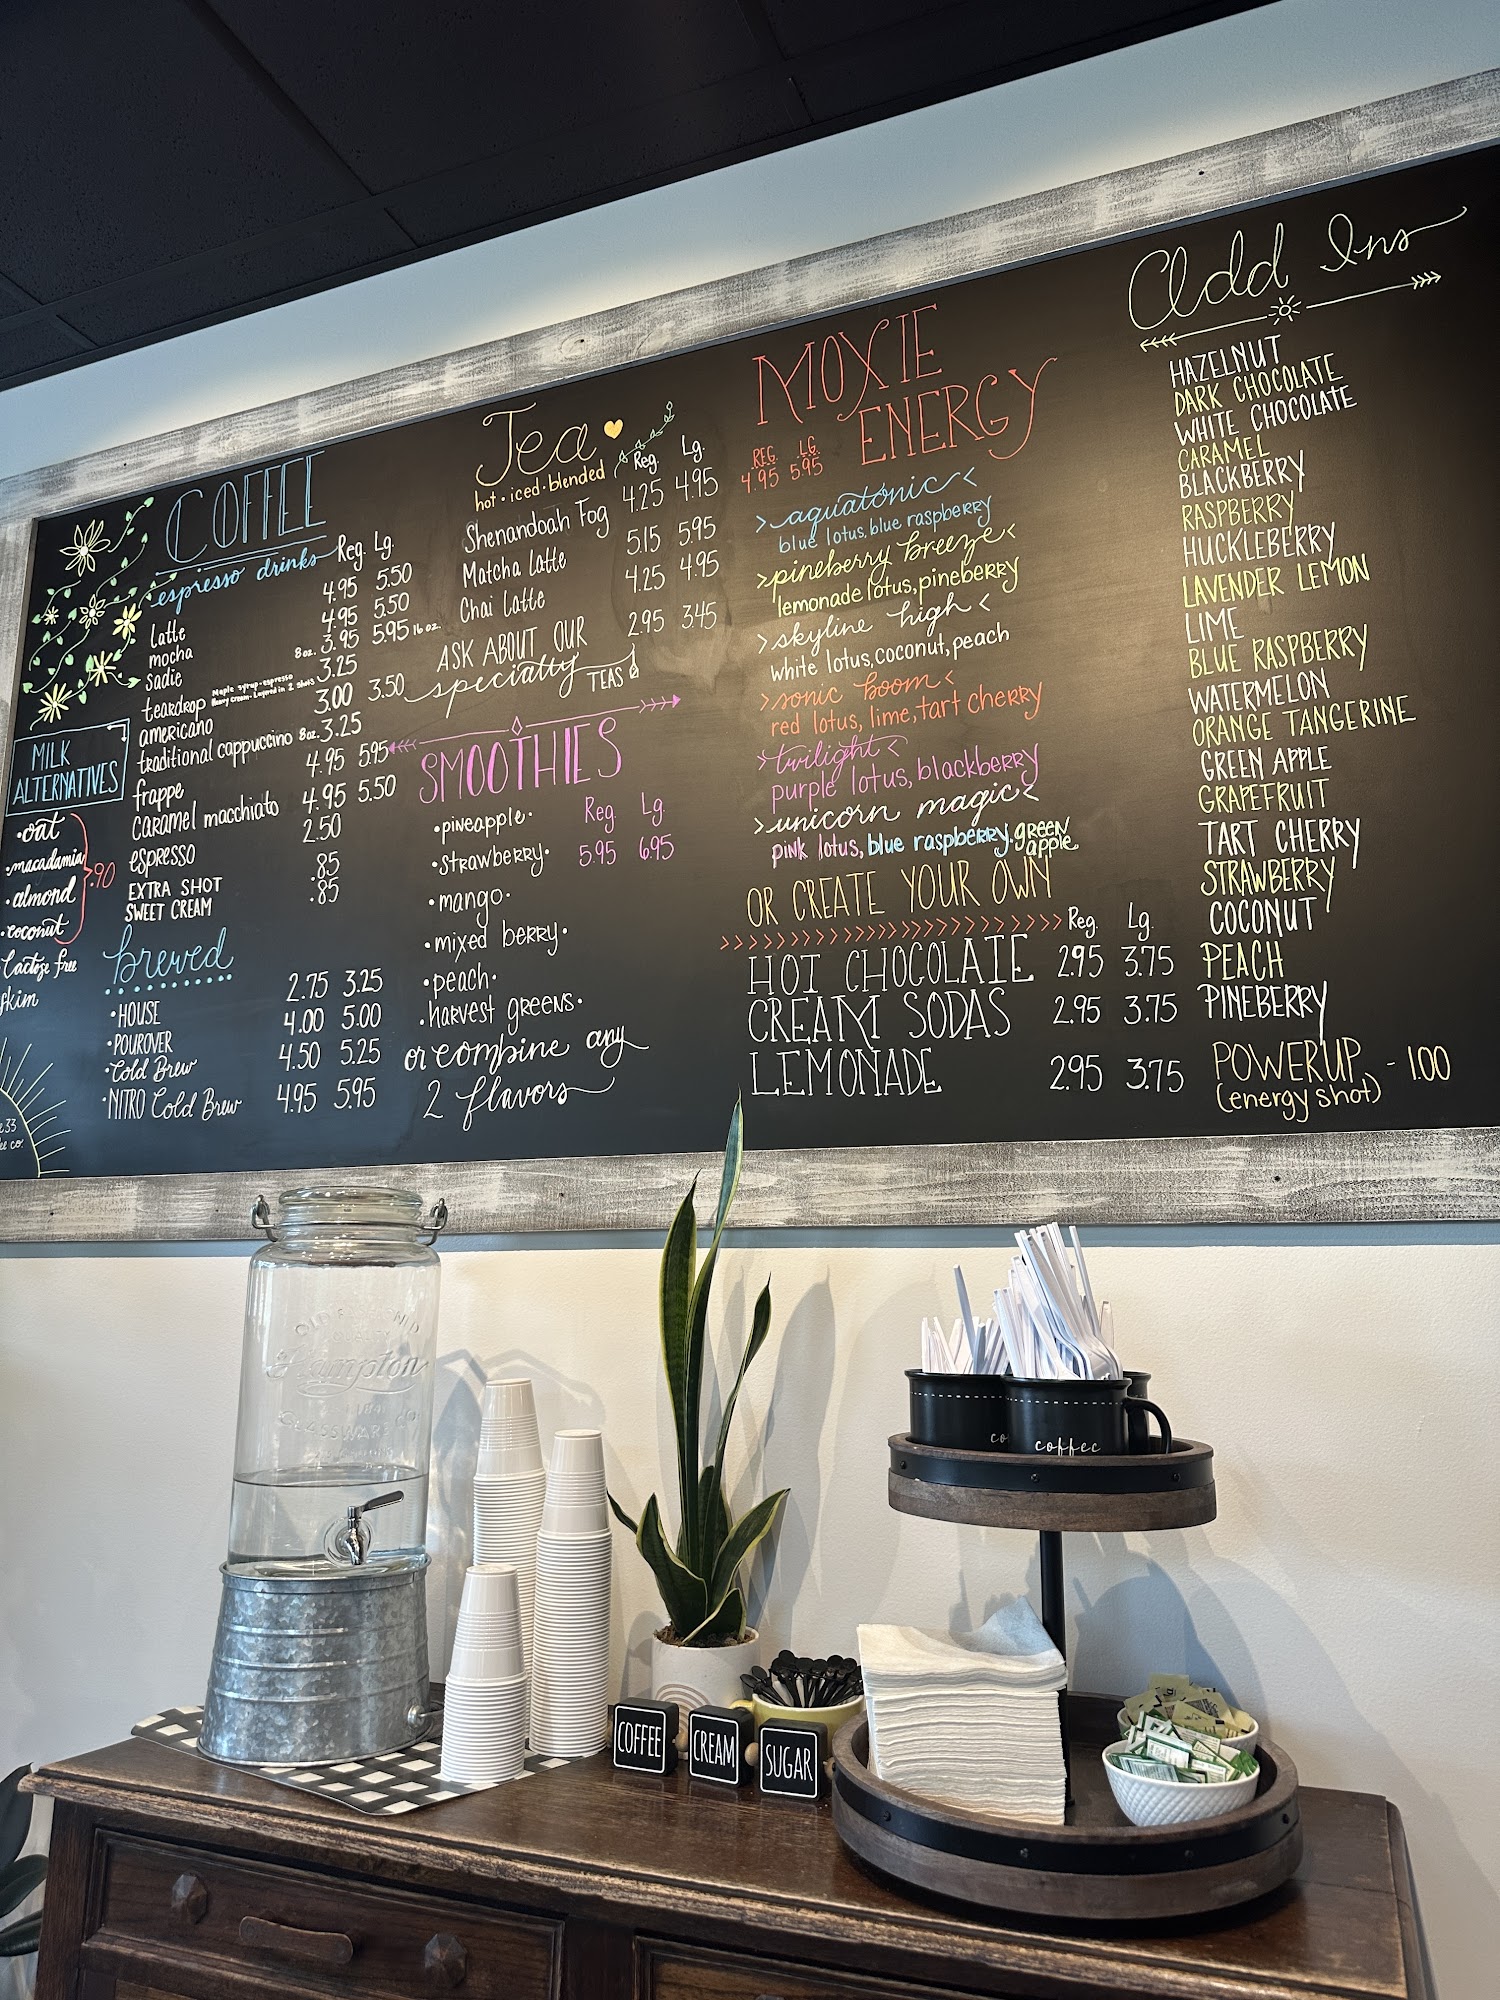 COFFEE
espresso drinks Reg. Lg.
latte 4.95 5.50
mocha 4.95 5.50
Sadie 8oz. 3.95 5.95 16oz.
teardrop Maple syrup·espresso 3.25
Heavy cream·Layered in 2 shots
americano 3.00 3.50
traditional cappuccino 8oz. 3.25
frappe 4.95 5.95
caramel macchiato 4.95 5.50
espresso 2.50
EXTRA SHOT .85
SWEET CREAM .85
MILK
ALTERNATIVES
•oat
•macadamia
.90
•almond
•coconut
Lactose free
skim
brewed
•HOUSE 2.75 3.25
•POUROVER 4.00 5.00
•Cold Brew 4.50 5.25
•NITRO Cold Brew 4.95 5.95
Tea
hot·iced·blended Reg. Lg.
Shenandoah Fog 4.25 4.95
Matcha latte 5.15 5.95
Chai Latte 4.25 4.95
ASK ABOUT OUR 2.95 3.45
specialty TEAS
SMOOTHIES
•pineapple• Reg. Lg.
•strawberry• 5.95 6.95
•mango•
•mixed berry•
•peach•
•harvest greens•
or combine any
2 flavors
MOXIE
ENERGY
REG. LG.
4.95 5.95
>aquatonic<
blue lotus, blue raspberry
>pineberry breeze<
lemonade lotus, pineberry
>skyline high<
white lotus, coconut, peach
>sonic boom<
red lotus, lime, tart cherry
>twilight<
purple lotus, blackberry
>unicorn magic<
pink lotus, blue raspberry, green apple
OR CREATE YOUR OWN
>>>>>>>>>>>>>>>>>>>>>>>> Reg. Lg.
HOT CHOCOLATE 2.95 3.75
CREAM SODAS 2.95 3.75
LEMONADE 2.95 3.75
Add Ins
HAZELNUT
DARK CHOCOLATE
WHITE CHOCOLATE
CARAMEL
BLACKBERRY
RASPBERRY
HUCKLEBERRY
LAVENDER LEMON
LIME
BLUE RASPBERRY
WATERMELON
ORANGE TANGERINE
GREEN APPLE
GRAPEFRUIT
TART CHERRY
STRAWBERRY
COCONUT
PEACH
PINEBERRY
POWERUP - 1.00
(energy shot)
Hampton
GLASSWARE
co
coffee
COFFEE
CREAM
SUGAR